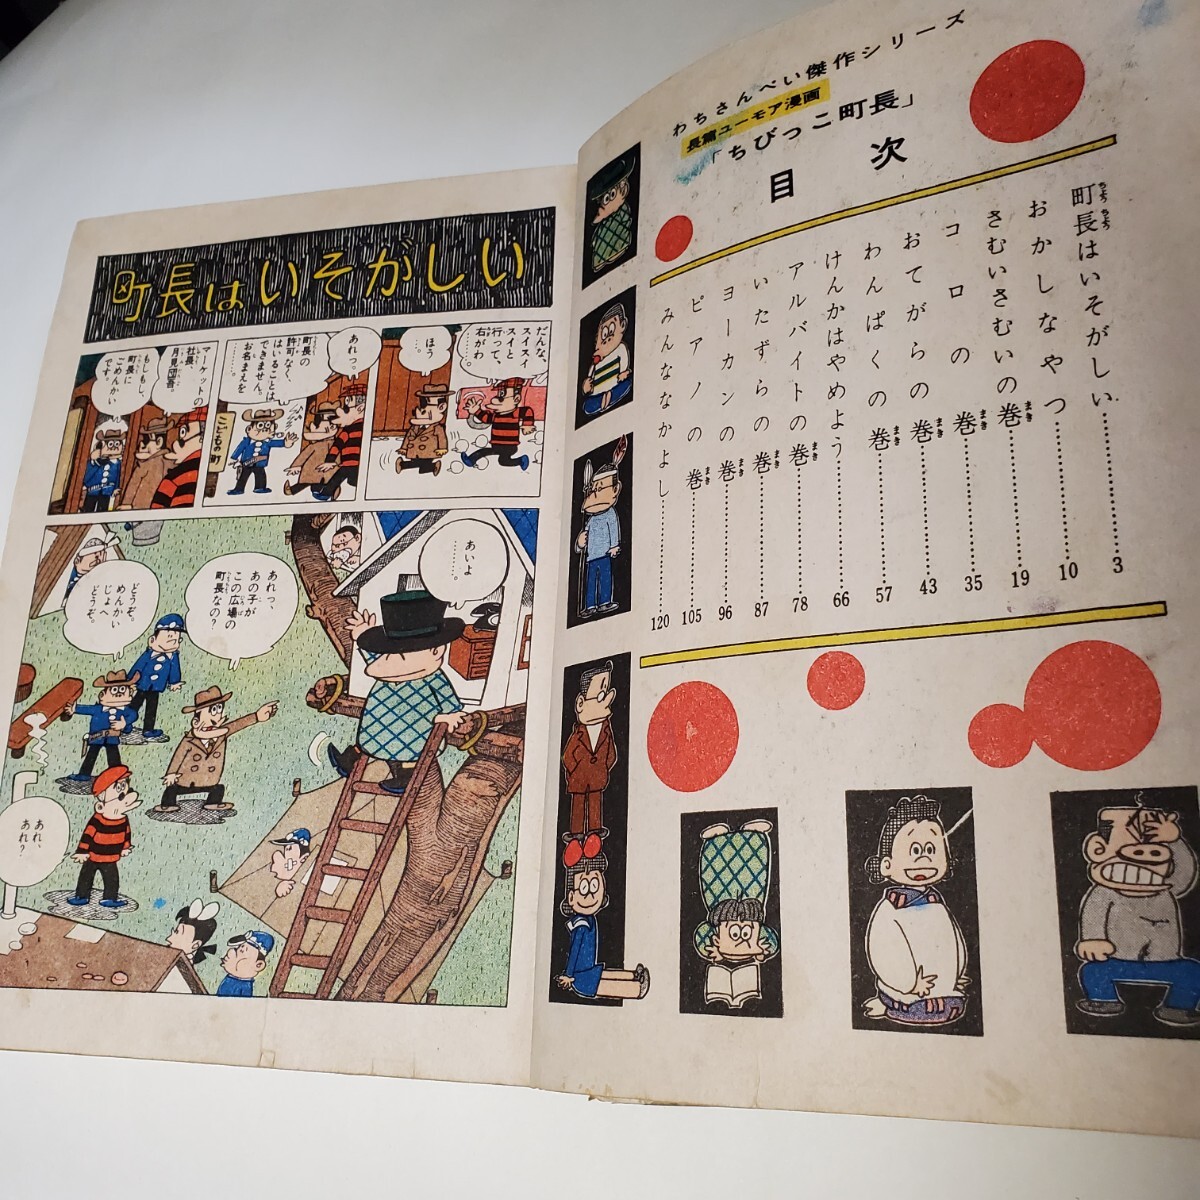 わちさんぺい傑作シリーズ
長篇ユーモア漫画
「ちびっこ町長」
目次
町長はいそがしい……3
おかしなやつ……10
さむいさむいの巻……19
コロの巻……35
おてがらの巻……43
わんぱくの巻……57
けんかはやめよう……66
アルバイトの巻……78
いたずらの巻……87
ヨーカンの巻……96
ピアノの巻……105
みんななかよし……120
町長はいそがしい
だんな、
スイスイ
スイと
行って、
右がわ。
ほう
…。
あれっ。
町長の
許可なく、
はいることは
できません。
お名まえを
……。
こどもの町
マーケットの
社長
月見団吾。
もしもし、
町長に
ごめんかい
です。
あいよ
……。
あれっ、
あの子が
この広場の
町長なの？
どうぞ。
めんかい
じょへ
どうぞ。
あれ、
あれ？